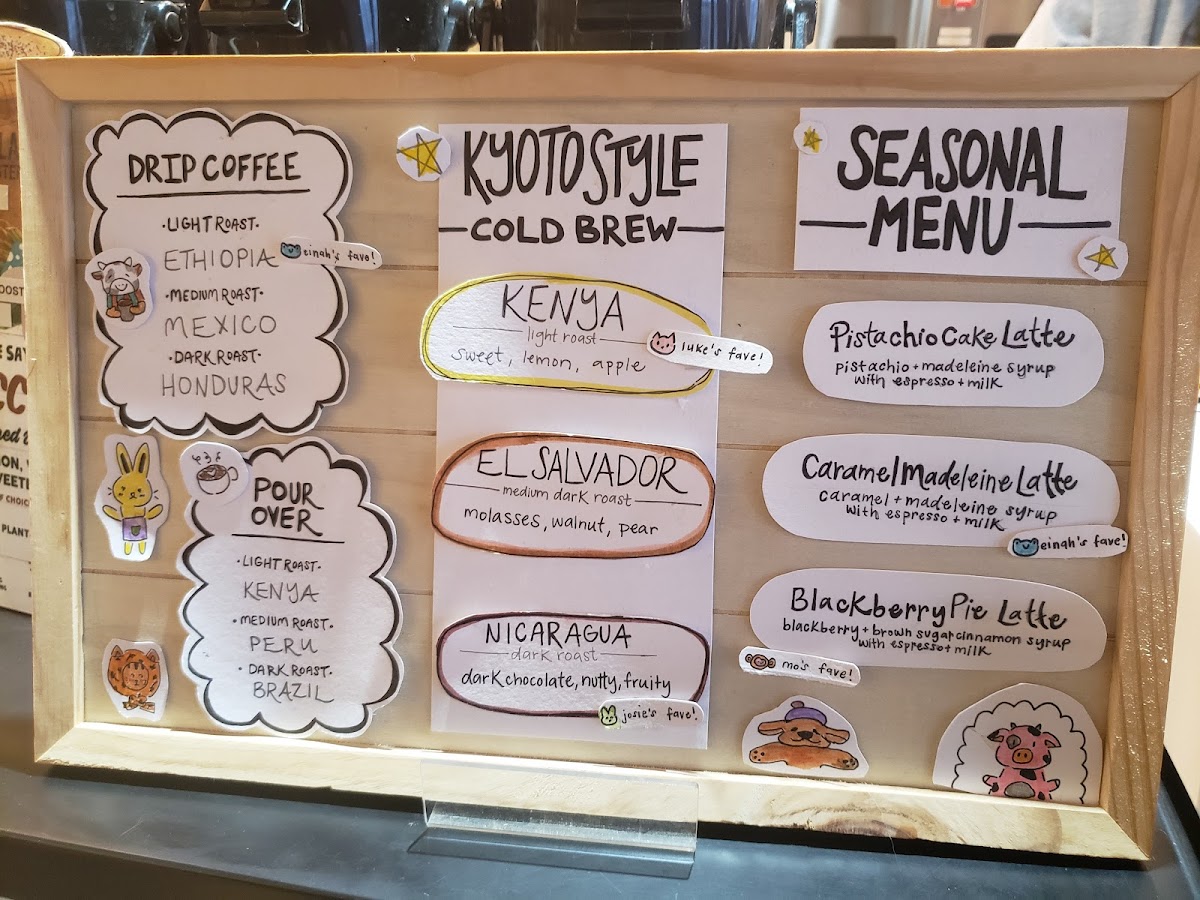 DRIP COFFEE
·LIGHT ROAST·
ETHIOPIA
einah's fave!
·MEDIUM ROAST·
MEXICO
·DARK ROAST·
HONDURAS
POUR
OVER
·LIGHT ROAST·
KENYA
·MEDIUM ROAST·
PERU
·DARK ROAST·
BRAZIL
KYOTO STYLE
COLD BREW
KENYA
light roast
sweet, lemon, apple
luke's fave!
EL SALVADOR
medium dark roast
molasses, walnut, pear
NICARAGUA
dark roast
dark chocolate, nutty, fruity
josie's fave!
SEASONAL
MENU
Pistachio Cake Latte
pistachio + madeleine syrup
with espresso + milk
Caramel Madeleine Latte
caramel + madeleine syrup
with espresso + milk
einah's fave!
Blackberry Pie Latte
blackberry + brown sugar cinnamon syrup
with espresso + milk
mo's fave!
PLANT